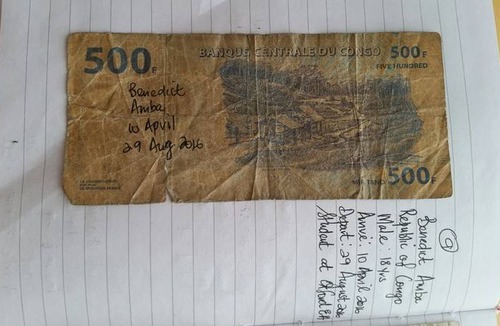 500F
BANQUE CENTRALE DU CONGO
500F
FIVE HUNDRED
Benedict
Amba
10 April
29 Aug 2016
500F
9
Benedict Amba
Republic of Congo
Male: 18 yrs
Arrive: 10 April 2016
Depart: 29 August 2016
Student at Oxford